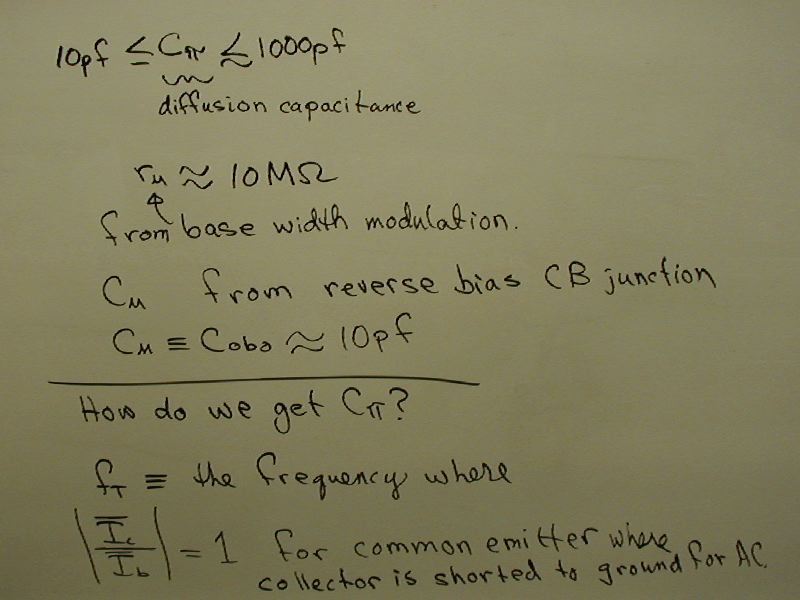 10pf ≤ Cπ ≲ 1000pf
diffusion capacitance
rμ ≈ 10MΩ
from base width modulation.
Cμ from reverse bias CB junction
Cμ ≡ Cobo ≈ 10pf
How do we get Cπ?
fT ≡ the frequency where
|Ic/Ib| = 1 for common emitter where
collector is shorted to ground for AC.